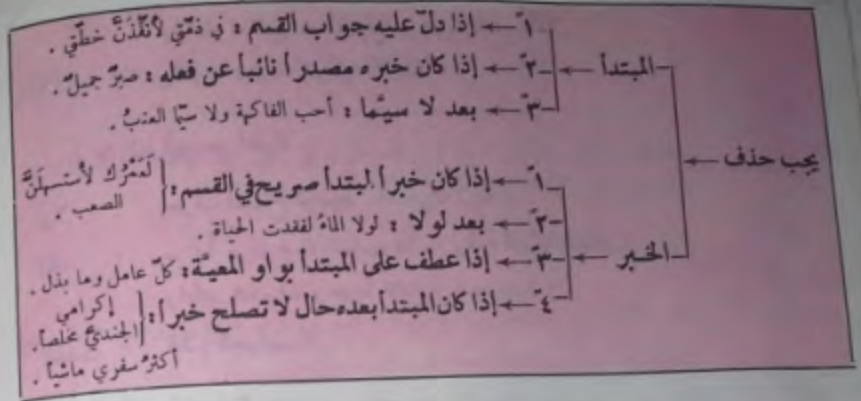 يجب حذف
المبتدأ
١ً- إذا دلّ عليه جواب القسم : في ذمّتي لأنفّذنَّ خطّتي .
٢ً- إذا كان خبره مصدراً نائباً عن فعله : صبرٌ جميلٌ .
٣ً- بعد لا سيّما : أحب الفاكهة ولا سيّما العنبُ .
الخبر
١ً- إذا كان خبراً لمبتدأ صريح في القسم : لَعَمْرُك لأستسهلَنَّ
الصعب .
٢ً- بعد لولا : لولا الماءُ لفقدت الحياة .
٣ً- إذا عطف على المبتدأ بواو المعيّة : كلّ عامل وما بذل .
٤ً- إذا كان المبتدأ بعده حال لا تصلح خبراً : إكرامي
الجنديَّ مخلصاً .
أكثرُ سفري ماشياً .